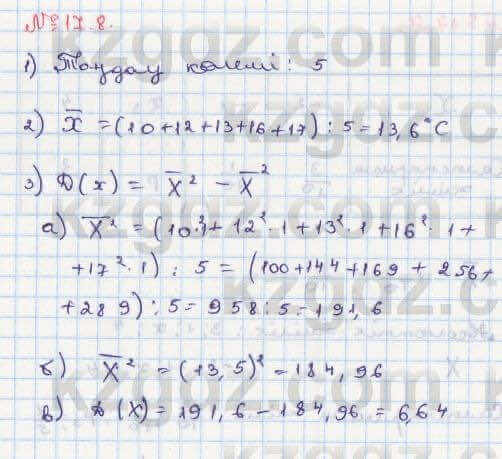 № 17.8.
1) Таңдау көлемі: 5
2) X̅ = (10+12+13+16+17) : 5 = 13,6°C
3) D(x) = X̅² − X̅²
а) X̅² = (10²·1 + 12²·1 + 13²·1 + 16²·1 +
+17²·1) : 5 = (100+144+169+256+
+289) : 5 = 958 : 5 = 191,6
б) X̅² = (13,5)² = 184,96
в) D(X) = 191,6 − 184,96 = 6,64